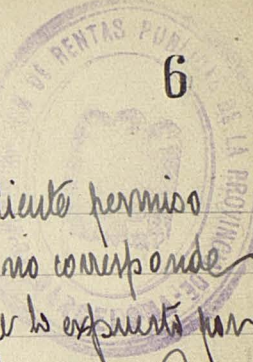 DE RENTAS PUBLICAS DE LA PROVINC
6
iente permiso
no corresponde
e lo expuesto por